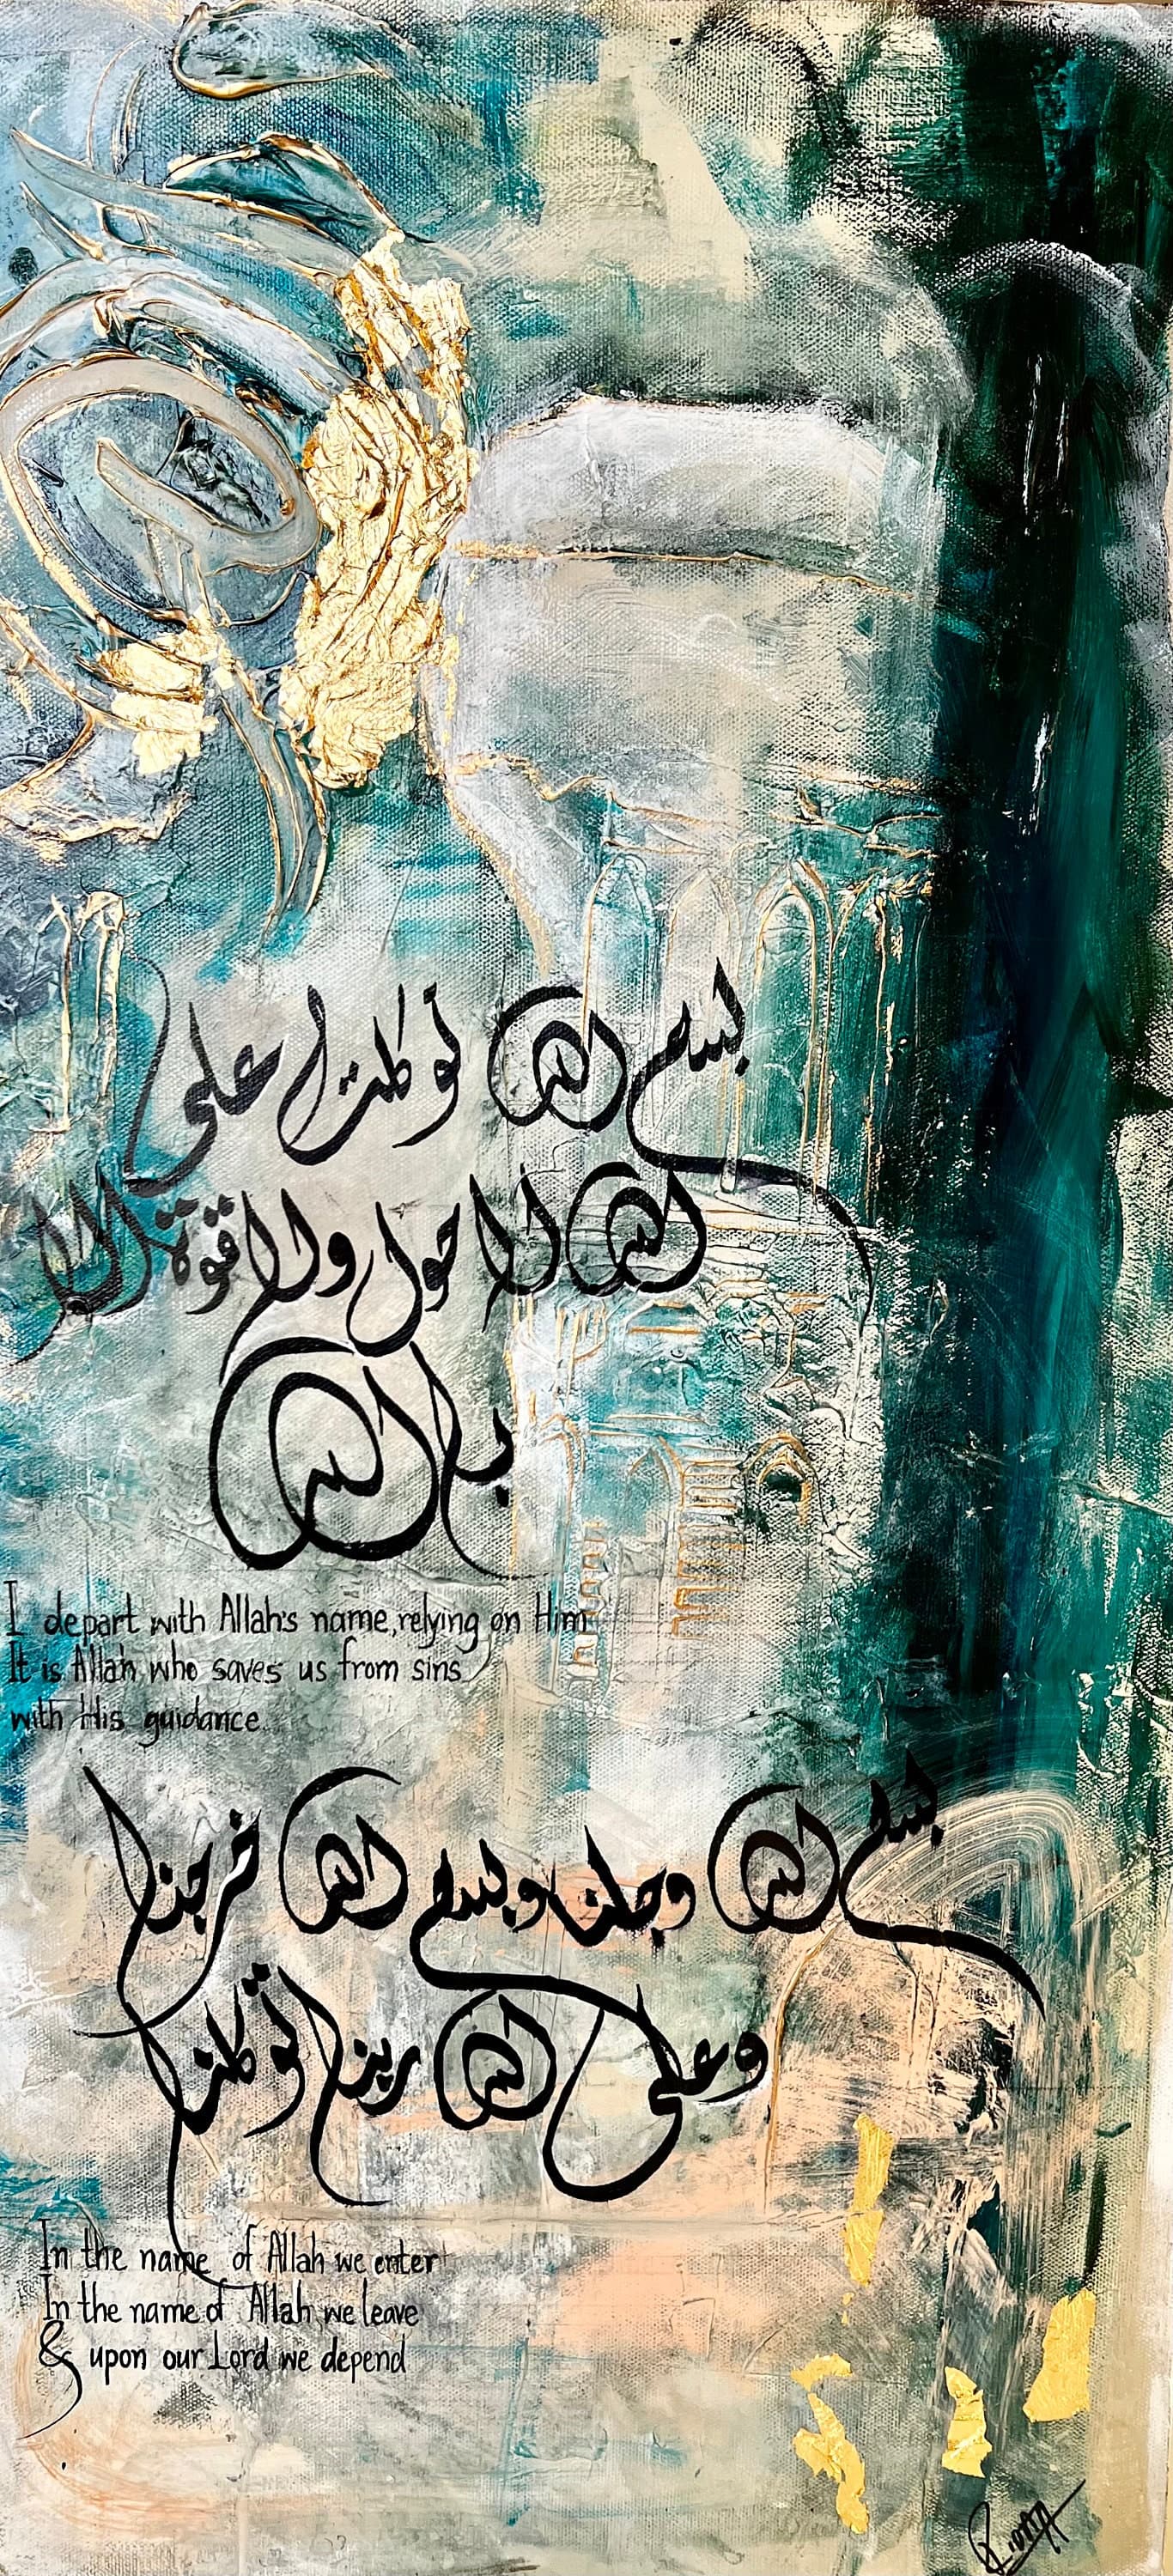 بسم الله توكلت على
الله لا حول ولا قوة الا
بالله
I depart with Allah's name, relying on Him
It is Allah who saves us from sins
with His guidance.
بسم الله ولجنا وبسم الله خرجنا
وعلى الله ربنا توكلنا
In the name of Allah we enter
In the name of Allah we leave
& upon our Lord we depend